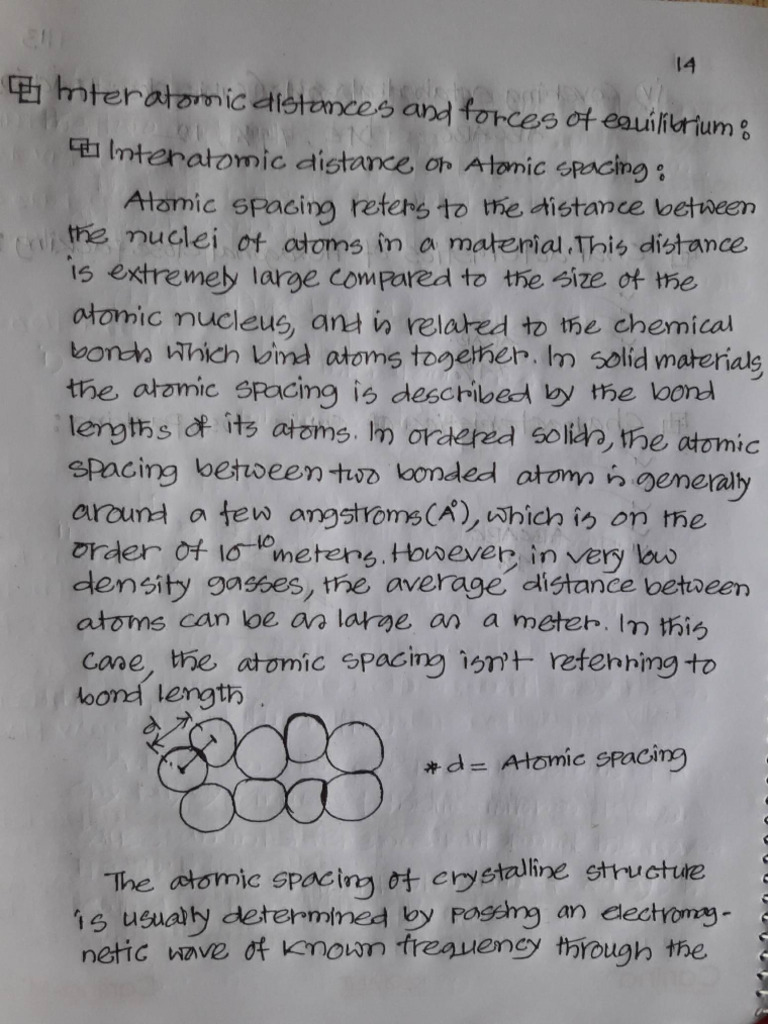 14
Interatomic distances and forces of equilibrium:
Interatomic distance or Atomic spacing:
Atomic spacing refers to the distance between
the nuclei of atoms in a material. This distance
is extremely large compared to the size of the
atomic nucleus, and is related to the chemical
bonds which bind atoms together. In solid materials,
the atomic spacing is described by the bond
lengths of its atoms. In ordered solids, the atomic
spacing between two bonded atoms is generally
around a few angstroms (A°), which is on the
order of 10⁻¹⁰ meters. However, in very low
density gasses, the average distance between
atoms can be as large as a meter. In this
case, the atomic spacing isn't referring to
bond length.
d
*d = Atomic spacing
The atomic spacing of crystalline structure
is usually determined by passing an electromag-
netic wave of known frequency through the